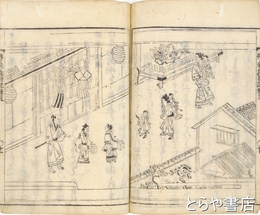 とらや書店